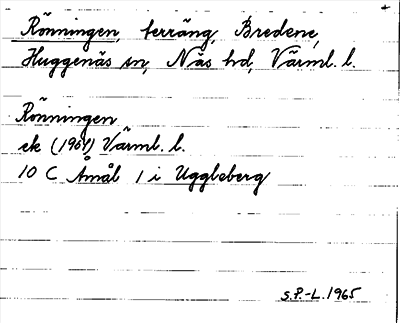 Rönningen, terräng, Bredene,
Huggenäs sn, Näs hd, Värml. l.
Rönningen
ek (1964) Värml. l.
10 C Åmål 1 i Uggleberg
S.P.-L. 1965